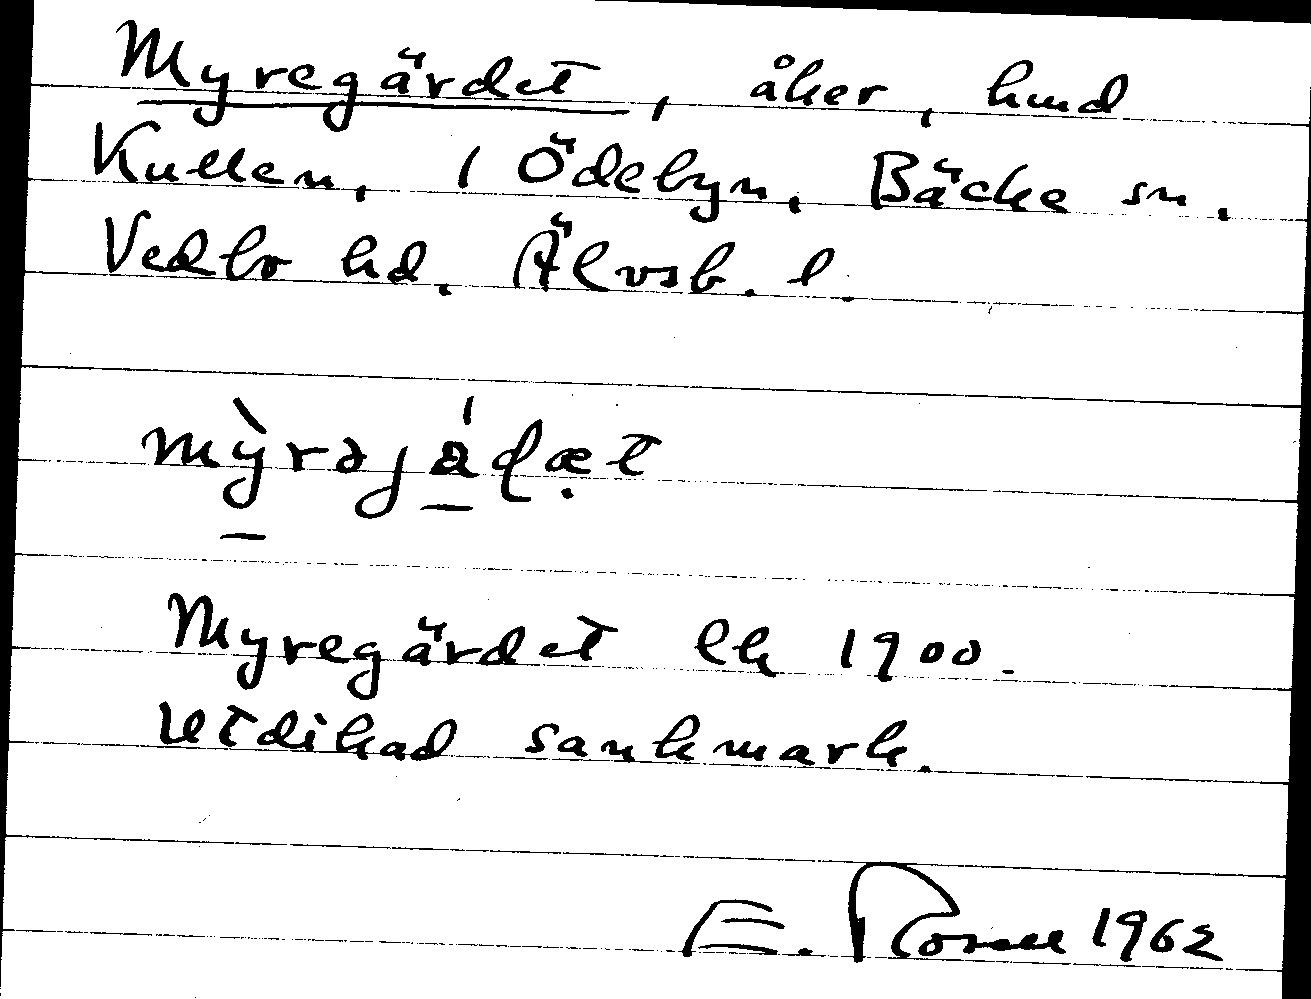 Myregärdet, åker, hmd
Kullen, 1 Ödebyn, Bäcke sn.
Vedbo hd. Älvsb. l.
mỳrəjá̱ḍæt
Myregärdet lk 1900.
Utdikad sankmark.
E. 1962